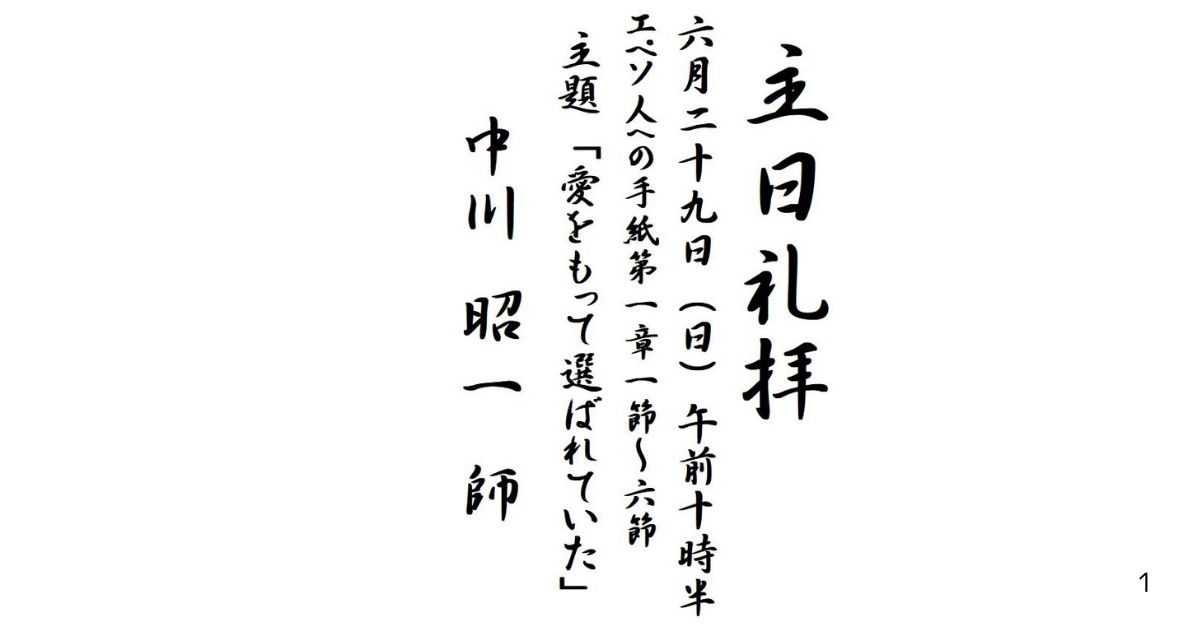 主日礼拝
六月二十九日（日）午前十時半
エペソ人への手紙第一章一節〜六節
主題「愛をもって選ばれていた」
中川 昭一 師
1